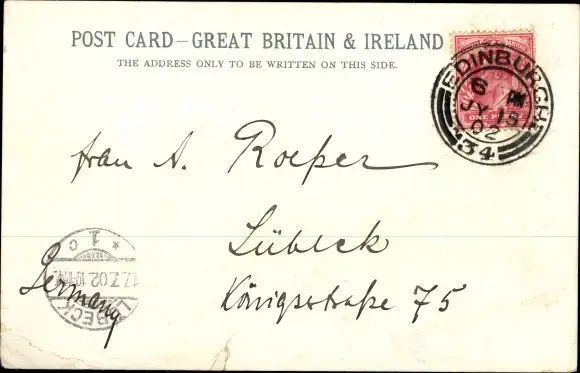 POST CARD – GREAT BRITAIN & IRELAND
THE ADDRESS ONLY TO BE WRITTEN ON THIS SIDE.
EDINBURGH
6 PM
JY 15
02
34
ONE PENNY
frau A. Roeper
Lübeck
Königsstraße 75
Germany
LÜBECK
17.7.02
* 1 c